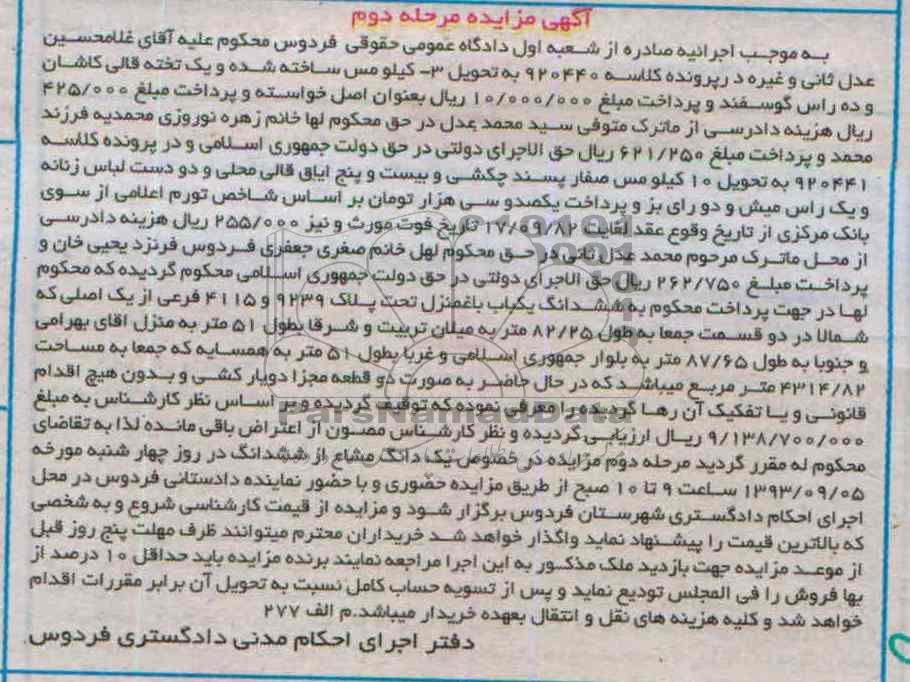 آگهی مزایده مرحله دوم
به موجب اجرائیه صادره از شعبه اول دادگاه عمومی حقوقی فردوس محکوم علیه آقای غلامحسین
عدل ثانی و غیره در پرونده کلاسه ۹۲۰۴۴۰ به تحویل ۳- کیلو مس ساخته شده و یک تخته قالی کاشان
و ده راس گوسفند و پرداخت مبلغ ۱۰/۰۰۰/۰۰۰ ریال بعنوان اصل خواسته و پرداخت مبلغ ۴۲۵/۰۰۰
ریال هزینه دادرسی از ماترک متوفی سید محمد عدل در حق محکوم لها خانم زهره نوروزی محمدیه فرزند
محمد و پرداخت مبلغ ۶۲۱/۲۵۰ ریال حق الاجرای دولتی در حق دولت جمهوری اسلامی و در پرونده کلاسه
۹۲۰۴۴۱ به تحویل ۱۰ کیلو مس صفار پسند چکشی و بیست و پنج ایاق قالی محلی و دو دست لباس زنانه
و یک راس میش و دو رای بز و پرداخت یکصدو سی هزار تومان بر اساس شاخص تورم اعلامی از سوی
بانک مرکزی از تاریخ وقوع عقد لغایت ۱۷/۰۹/۸۲ تاریخ فوت مورث و نیز ۲۵۵/۰۰۰ ریال هزینه دادرسی
از محل ماترک مرحوم محمد عدل ثانی در حق محکوم لهل خانم صغری جعفری فردوس فرنزد یحیی خان و
پرداخت مبلغ ۲۶۲/۷۵۰ ریال حق الاجرای دولتی در حق دولت جمهوری اسلامی محکوم گردیده که محکوم
لها در جهت پرداخت محکوم به ششدانگ یکباب باغمنزل تحت پلاک ۹۲۳۹ و ۴۱۱۵ فرعی از یک اصلی که
شمالا در دو قسمت جمعا به طول ۸۲/۲۵ متر به میلان تربیت و شرقا بطول ۵۱ متر به منزل اقای بهرامی
و جنوبا به طول ۸۷/۶۵ متر به بلوار جمهوری اسلامی و غربا بطول ۵۱ متر به همسایه که جمعا به مساحت
۴۳۱۴/۸۲ متر مربع میباشد که در حال حاضر به صورت دو قطعه مجزا دویار کشی و بدون هیچ اقدام
قانونی و یا تفکیک آن رها گردیده را معرفی نموده که توقیف گردیده و بر اساس نظر کارشناس به مبلغ
۹/۱۳۸/۷۰۰/۰۰۰ ریال ارزیابی گردیده و نظر کارشناس مصون از اعتراض باقی مانده لذا به تقاضای
محکوم له مقرر گردید مرحله دوم مزایده در خصوص یک دانگ مشاع از ششدانگ در روز چهار شنبه مورخه
۱۳۹۳/۰۹/۰۵ ساعت ۹ تا ۱۰ صبح از طریق مزایده حضوری و با حضور نماینده دادستانی فردوس در محل
اجرای احکام دادگستری شهرستان فردوس برگزار شود و مزایده از قیمت کارشناسی شروع و به شخصی
که بالاترین قیمت را پیشنهاد نماید واگذار خواهد شد خریداران محترم میتوانند ظرف مهلت پنج روز قبل
از موعد مزایده جهت بازدید ملک مذکور به این اجرا مراجعه نمایند برنده مزایده باید حداقل ۱۰ درصد از
بها فروش را فی المجلس تودیع نماید و پس از تسویه حساب کامل نسبت به تحویل آن برابر مقررات اقدام
خواهد شد و کلیه هزینه های نقل و انتقال بعهده خریدار میباشد.م الف ۲۷۷
دفتر اجرای احکام مدنی دادگستری فردوس
ParsNamadData